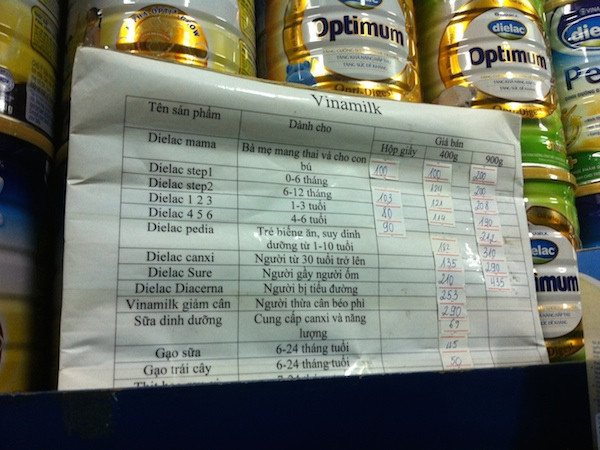 Optimum
dielac
Optimum
dielac
Pe
Vinamilk
Tên sản phẩm Dành cho Giá bán
Hộp giấy 400g 900g
Dielac mama Bà mẹ mang thai và cho con bú 100 100 200
Dielac step1 0-6 tháng
Dielac step2 6-12 tháng 103 121 208
Dielac 1 2 3 1-3 tuổi 80 114 190
Dielac 4 5 6 4-6 tuổi 90
Dielac pedia Trẻ biếng ăn, suy dinh
dưỡng từ 1-10 tuổi
Dielac canxi Người từ 30 tuổi trở lên 135 290
Dielac Sure Người gầy người ốm 210 435
Dielac Diacerna Người bị tiểu đường 253
Vinamilk giảm cân Người thừa cân béo phì 290
Sữa dinh dưỡng Cung cấp canxi và năng
lượng
Gạo sữa 6-24 tháng tuổi
Gạo trái cây 6-24 tháng tuổi 50
elac
imum